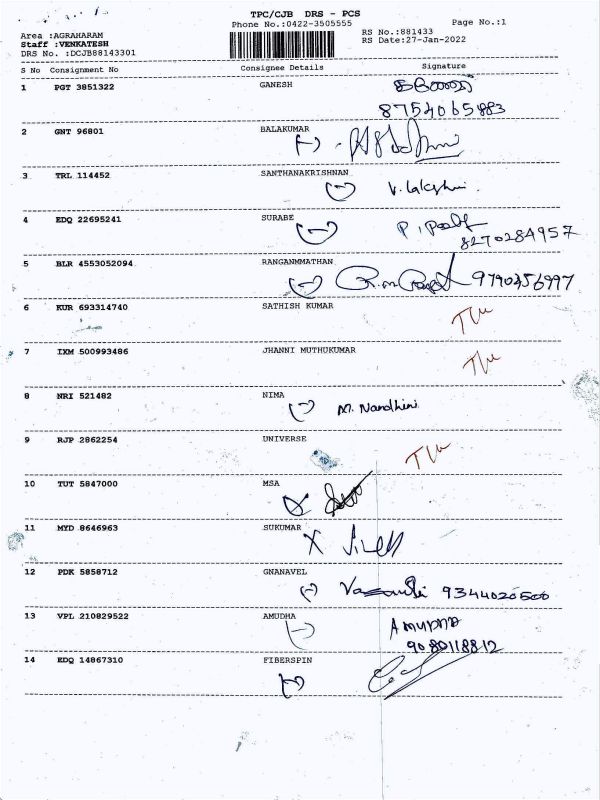 TPC/CJB DRS - PCS
Phone No.:0422-3505555
Page No.:1
Area :AGRAHARAM
RS No.:881433
Staff :VENKATESH
RS Date:27-Jan-2022
DRS No. :DCJB88143301
S No Consignment No Consignee Details Signature
1 PGT 3851322 GANESH
8754065883
2 GNT 96801 BALAKUMAR
3 TRL 114452 SANTHANAKRISHNAN
V. Lakshmi.
4 EDQ 22695241 SURABE
8270284957
5 BLR 4553052094 RANGANMMATHAN
9790256997
6 KUR 693314740 SATHISH KUMAR
7 IXM 500993486 JHANNI MUTHUKUMAR
8 NRI 521482 NIMA
M. Nandhini
9 RJP 2862254 UNIVERSE
10 TUT 5847000 MSA
11 MYD 8646963 SUKUMAR
12 PDK 5858712 GNANAVEL
9344020500
13 VPL 210829522 AMUDHA
Amudha
9080118812
14 EDQ 14867310 FIBERSPIN